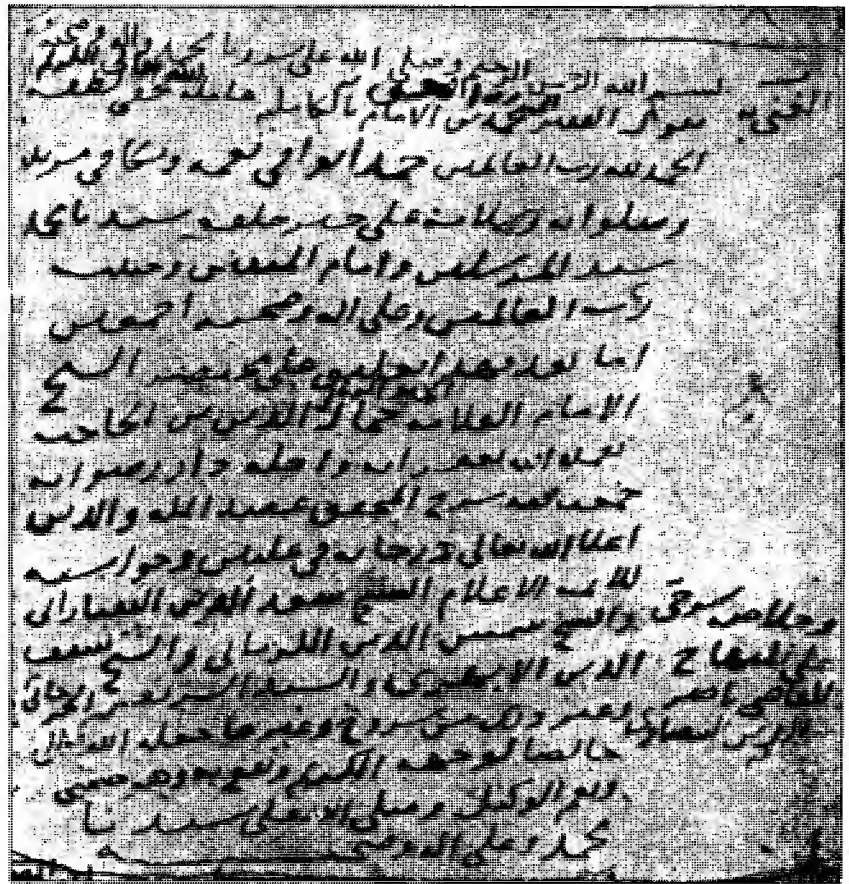 بسم الله الرحمن الرحيم وصلى الله على سيدنا محمد واله وصحبه
يقول الفقير محمد بن الامام بالكامليه عامله بخفي لطفه
الحمد لله رب العالمين حمدا يوافي نعمه ويكافي مزيده
وصلواته وصلات على خير خلقه سيدنا محمد
سيد المرسلين وامام المتقين وحبيب
رب العالمين وعلى اله وصحبه اجمعين
اما بعد فهذا تعليق على مختصر الشيخ
الامام العلامه جمال الدين بن الحاجب
تغمده الله بغفرانه واحله دار رضوانه
جمعت فيه شرح المحقق عضد المله والدين
اعلا الله تعالى درجاته في عليين وحواشيه
للايمه الاعلام الشيخ سعد الدين التفتازاني
والشيخ شمس الدين الكرماني والشيخ سيف
الدين الابهري والسيد الشريف الجرجاني
وخلاص شرحي
على المنهاج
للقاضي ناصر
الدين البيضاوي
وغير ذلك من شروح وغيرها جعله الله تعالى
خالصا لوجهه الكريم ونفع به وهو حسبي
ونعم الوكيل وصلى الله على سيدنا
محمد وعلى اله وصحبه